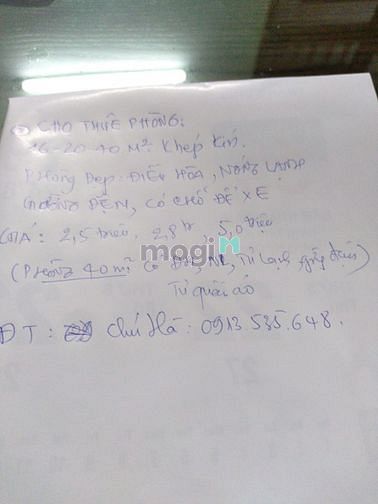 CHO THUÊ PHÒNG:
16-20-40 M² Khép kín.
Phòng Đẹp: ĐIỀU HÒA, NÓNG LẠNH
GIƯỜNG ĐỆN, CÓ CHỖ ĐỂ XE
GIÁ: 2,5 triệu, 2,8 tr, 5,0 triệu
mogi
(PHÒNG 40 m² có ĐH, NL, Tủ lạnh,
Tủ quần áo
ĐT: Chú Hà: 0913 535.648.